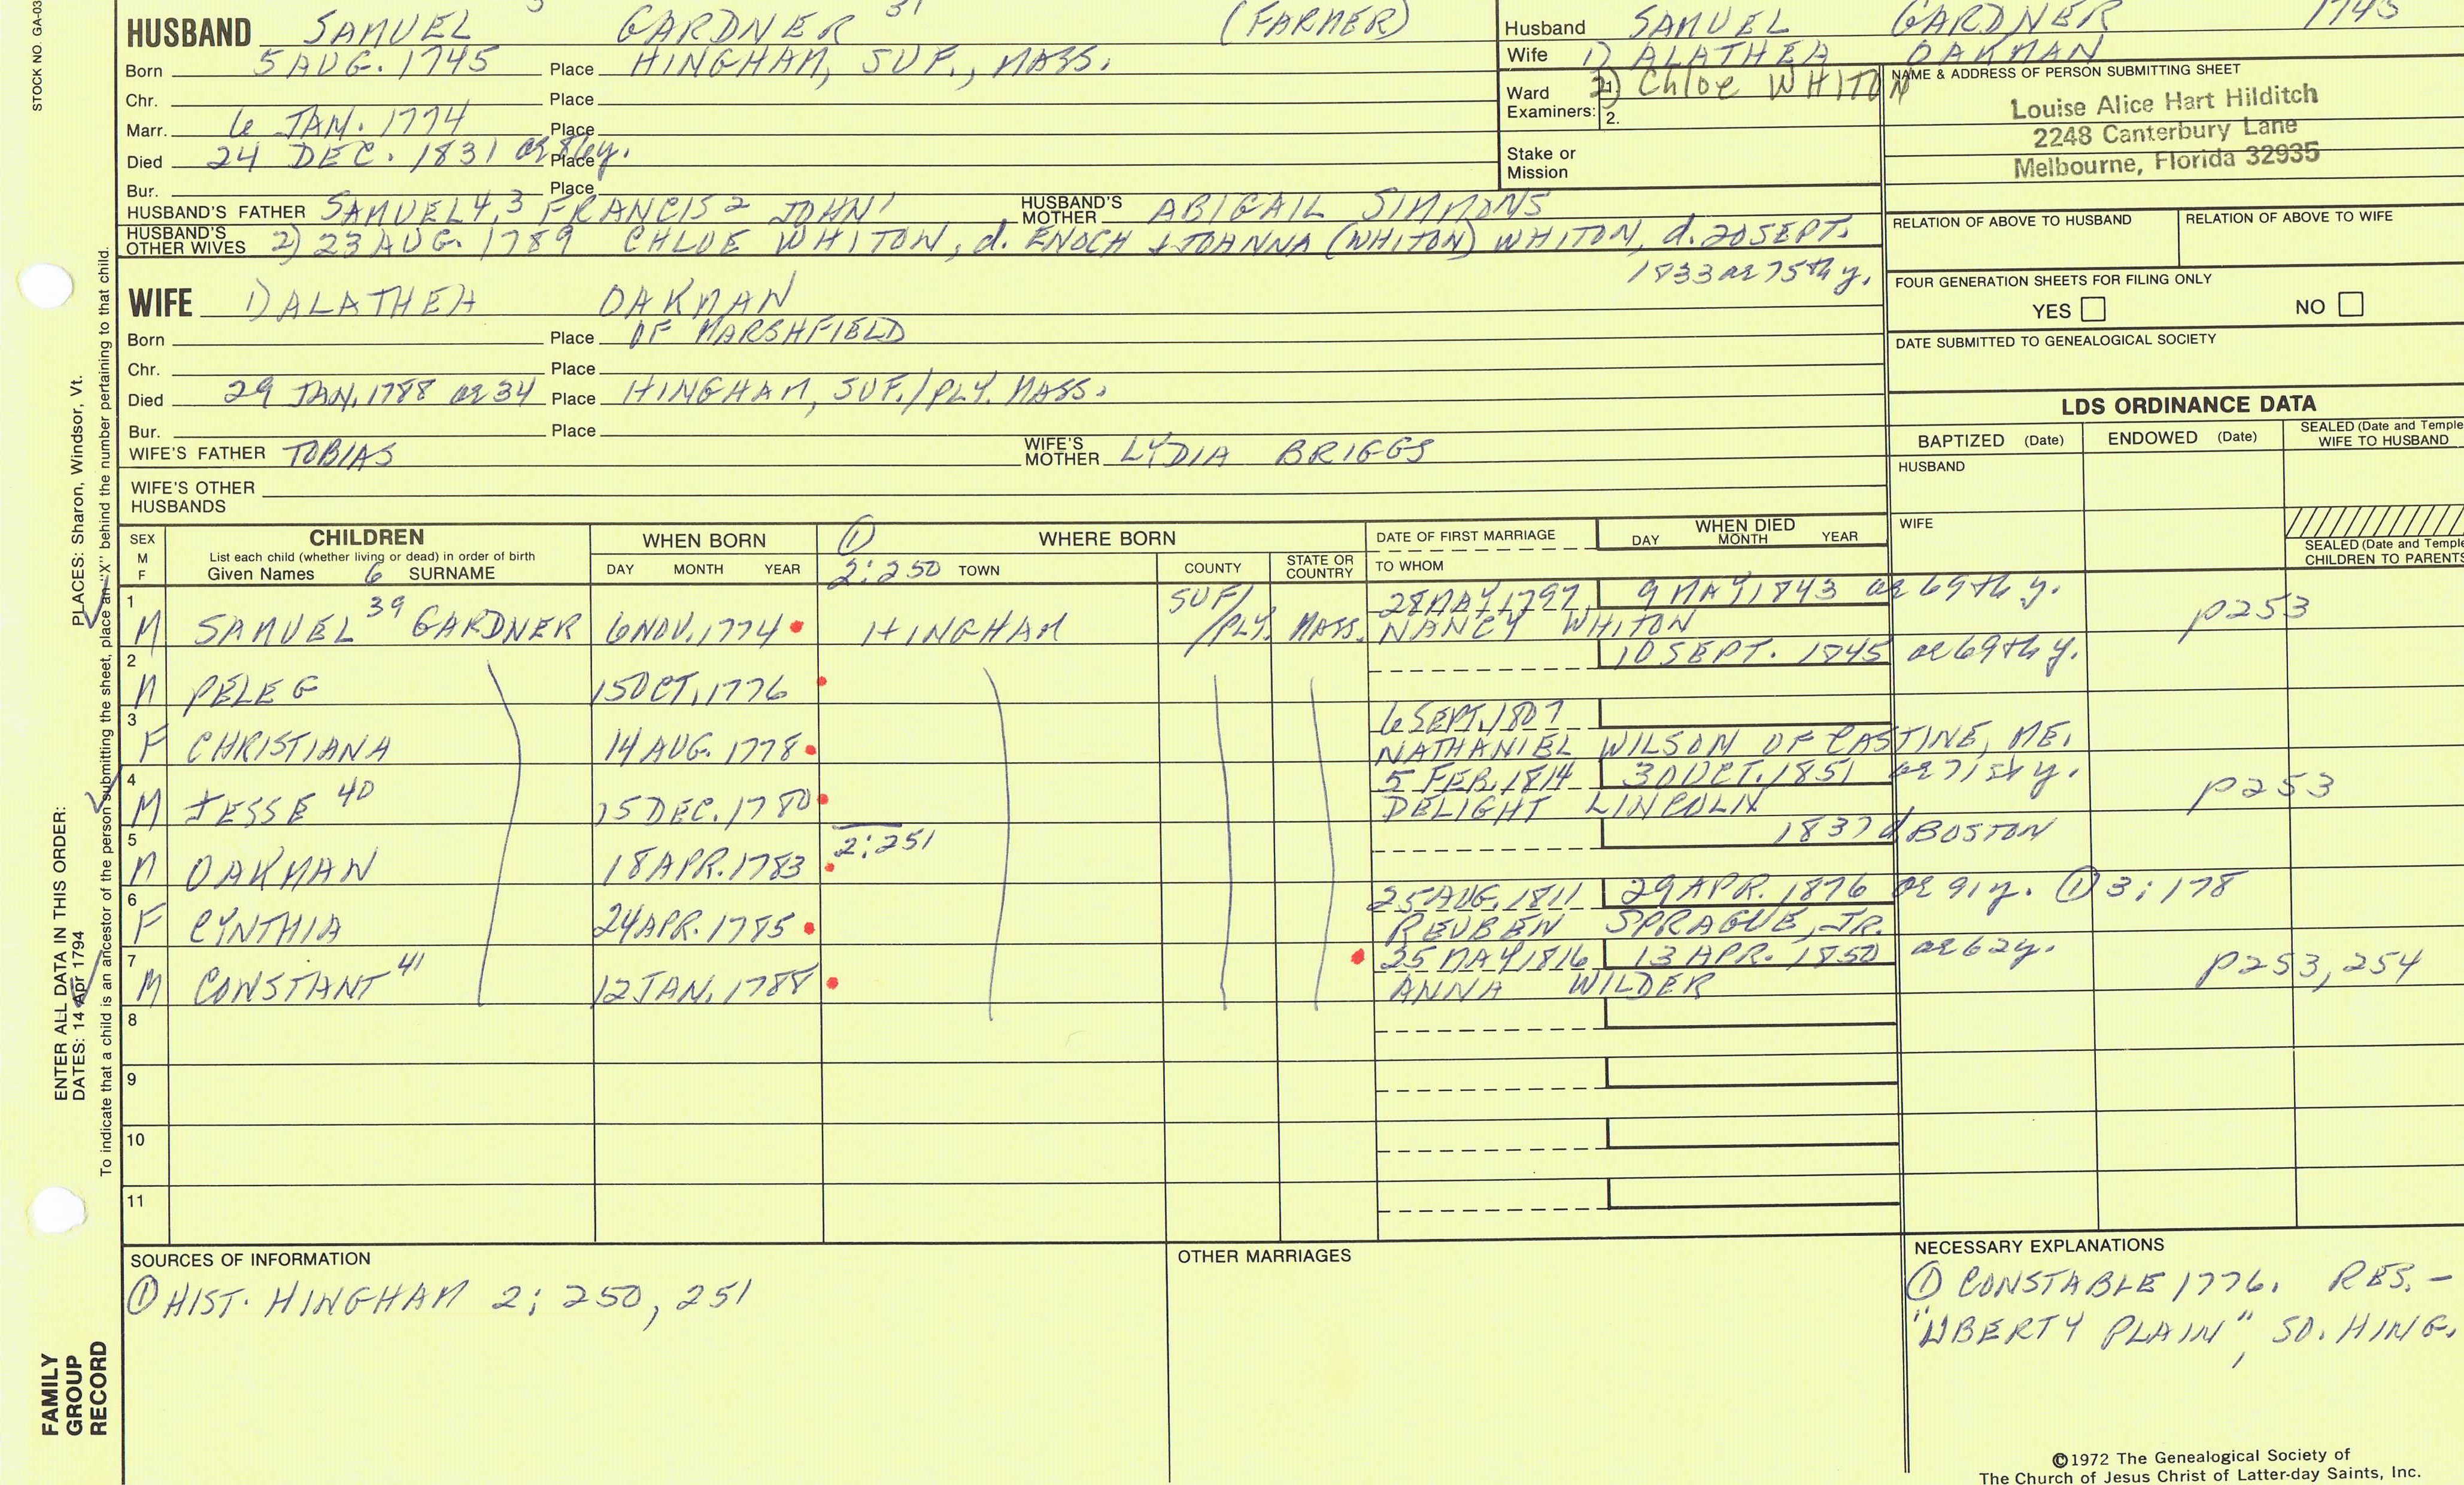 STOCK NO GA-03
HUSBAND SAMUEL 5 GARDNER 31 (FARMER)
Born 5 AUG. 1745 Place HINGHAM, SUF., MASS.
Chr. Place
Marr. 6 JAN. 1774 Place
Died 24 DEC. 1831 ae 86y. Place
Bur. Place
HUSBAND'S FATHER SAMUEL 4,3 FRANCIS 2 JOHN 1 HUSBAND'S MOTHER ABIGAIL SIMMONS
HUSBAND'S OTHER WIVES 2) 23 AUG. 1789 CHLOE WHITON, d. ENOCH & JOANNA (WHITON) WHITON, d. 20 SEPT.
1833 ae 75th y.
Husband SAMUEL GARDNER 1745
Wife 1) ALATHEA OAKMAN
2) Chloe WHITON
Ward Examiners: 1.
2.
Stake or Mission
NAME & ADDRESS OF PERSON SUBMITTING SHEET
Louise Alice Hart Hilditch
2248 Canterbury Lane
Melbourne, Florida 32935
RELATION OF ABOVE TO HUSBAND RELATION OF ABOVE TO WIFE
FOUR GENERATION SHEETS FOR FILING ONLY
YES NO
DATE SUBMITTED TO GENEALOGICAL SOCIETY
WIFE 1) ALATHEA OAKMAN
Born Place OF MARSHFIELD
Chr. Place
Died 29 JAN. 1788 ae 34 Place HINGHAM, SUF./PLY. MASS.
Bur. Place
WIFE'S FATHER TOBIAS WIFE'S MOTHER LYDIA BRIGGS
WIFE'S OTHER HUSBANDS
LDS ORDINANCE DATA
BAPTIZED (Date) ENDOWED (Date) SEALED (Date and Temple
WIFE TO HUSBAND
HUSBAND
WIFE
SEALED (Date and Temple
CHILDREN TO PARENTS
SEX M F
CHILDREN
List each child (whether living or dead) in order of birth
Given Names 6 SURNAME
WHEN BORN
DAY MONTH YEAR
① WHERE BORN
2:250 TOWN COUNTY STATE OR COUNTRY
DATE OF FIRST MARRIAGE
TO WHOM
WHEN DIED
DAY MONTH YEAR
1 M SAMUEL 39 GARDNER 6 NOV. 1774 HINGHAM SUF/ /PLY. MASS. 28 MAY 1797 9 MAY 1843 ae 69th y. p253
NANCY WHITON
2 M PELEG 15 OCT. 1776 10 SEPT. 1845 ae 69th y.
3 F CHRISTIANA 14 AUG. 1778 6 SEPT. 1807
NATHANIEL WILSON OF CASTINE, ME.
4 M JESSE 40 15 DEC. 1780 5 FEB. 1814 30 OCT. 1851 ae 71st y. p253
DELIGHT LINCOLN
5 M OAKMAN 18 APR. 1783 2:251 1837 d BOSTON
6 F CYNTHIA 24 APR. 1785 25 AUG. 1811 29 APR. 1876 ae 91y. ① 3:178
REUBEN SPRAGUE, JR.
7 M CONSTANT 41 12 JAN. 1788 25 MAY 1816 13 APR. 1850 ae 62y. p253, 254
ANNA WILDER
8
9
10
11
SOURCES OF INFORMATION
① HIST. HINGHAM 2: 250, 251
OTHER MARRIAGES
NECESSARY EXPLANATIONS
① CONSTABLE 1776. RES.-
"LIBERTY PLAIN", SO. HING.
©1972 The Genealogical Society of
The Church of Jesus Christ of Latter-day Saints, Inc.
ENTER ALL DATA IN THIS ORDER:
DATES: 14 Apr 1794 PLACES: Sharon, Windsor, Vt.
To indicate that a child is an ancestor of the person submitting the sheet, place an "X" behind the number pertaining to that child.
FAMILY
GROUP
RECORD